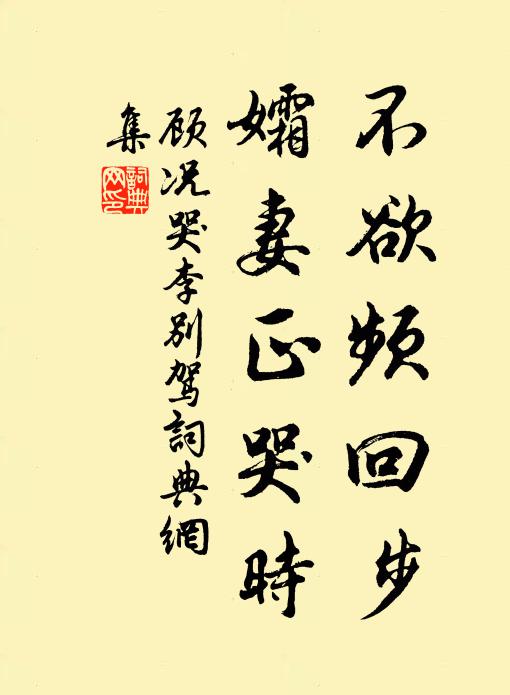 不欲频回步
孀妻正哭时
顾况哭李别驾詞典網
集
詞典
网印